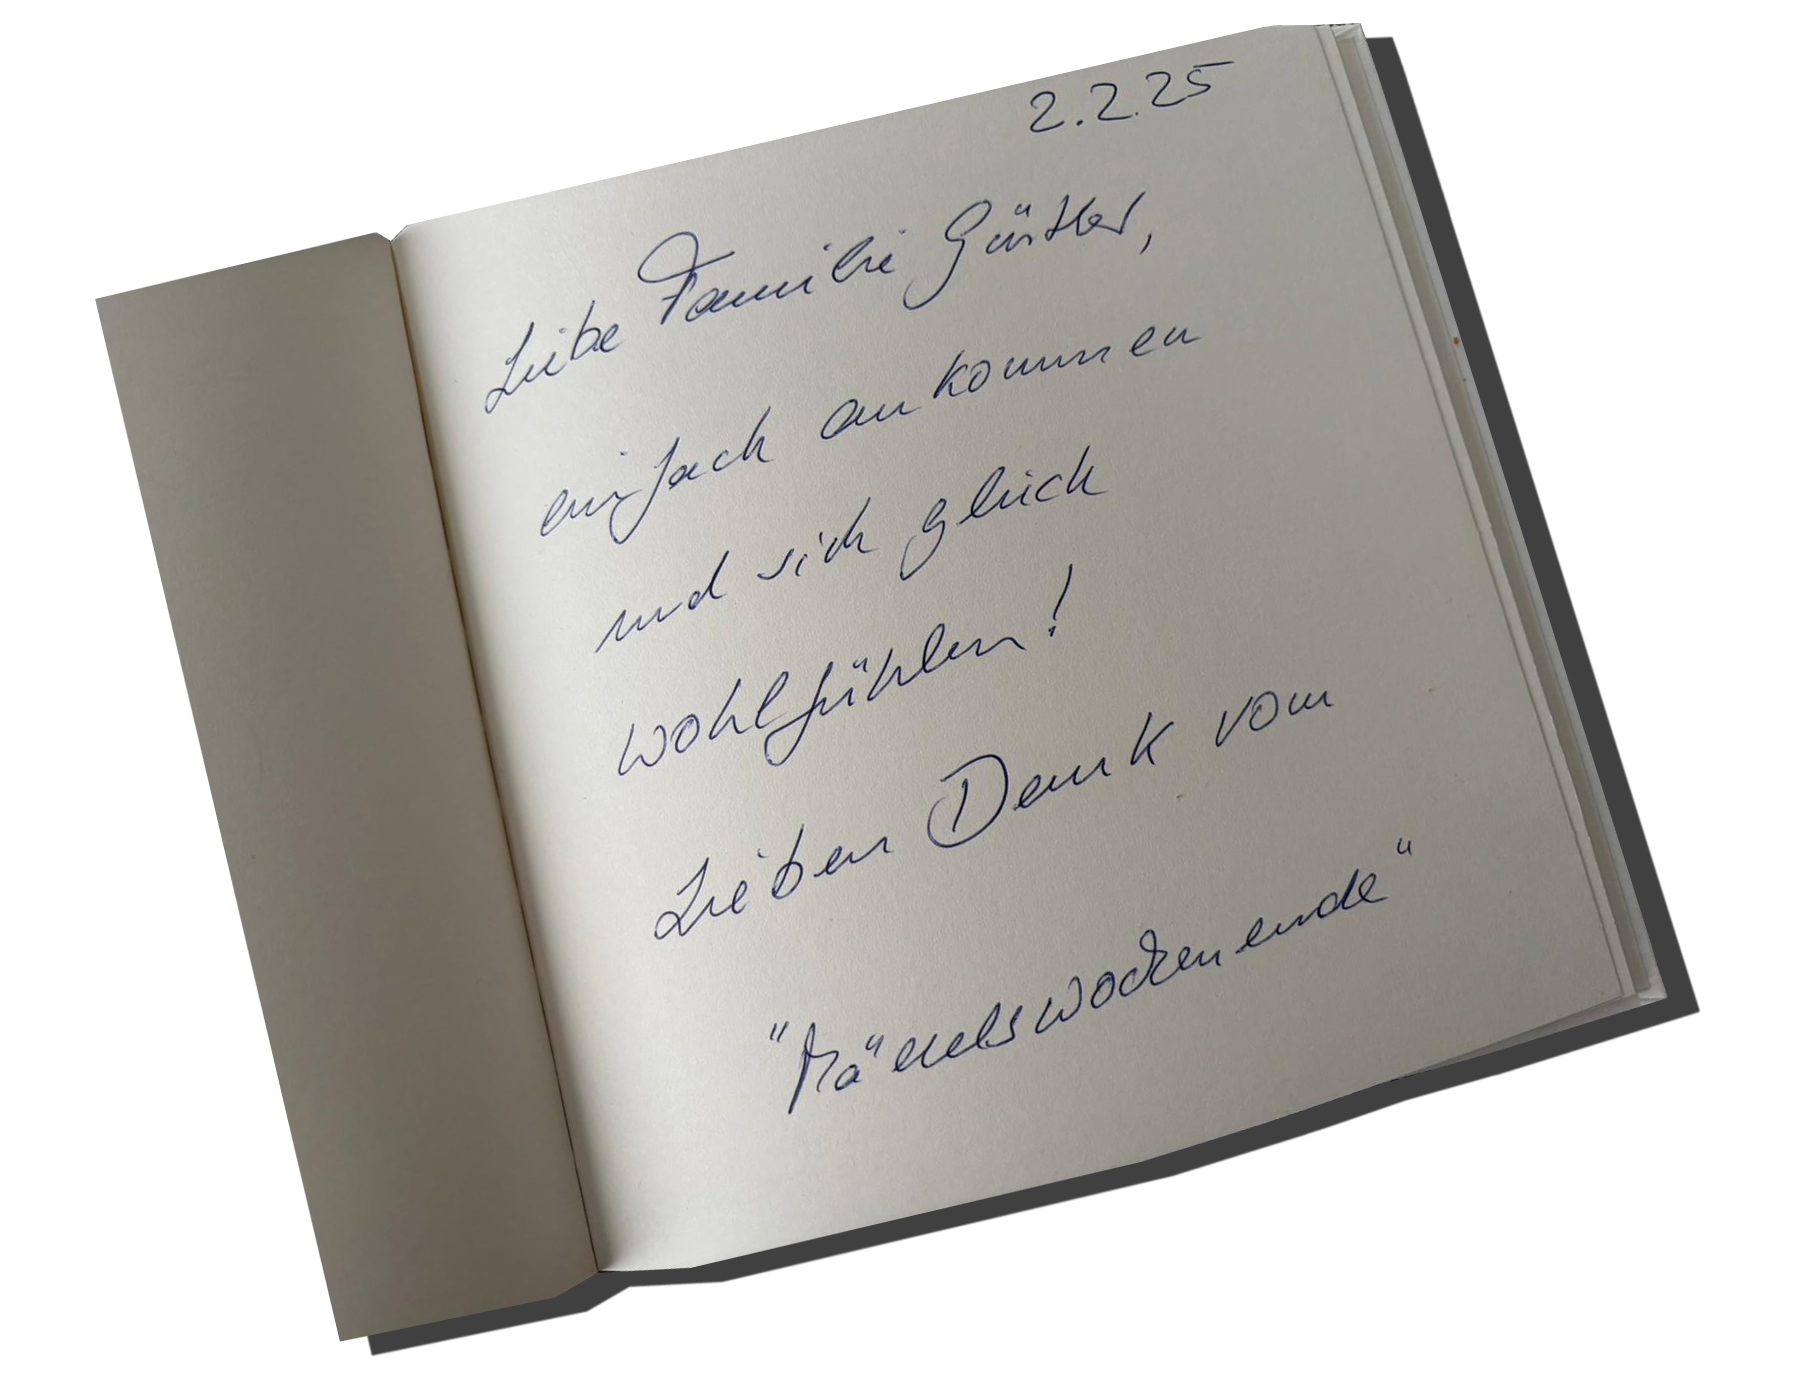 2.2.25
Liebe Familie Gürtler,
einfach ankommen
und sich gleich
wohlfühlen!
Lieben Dank vom
"Mädelswochenende"